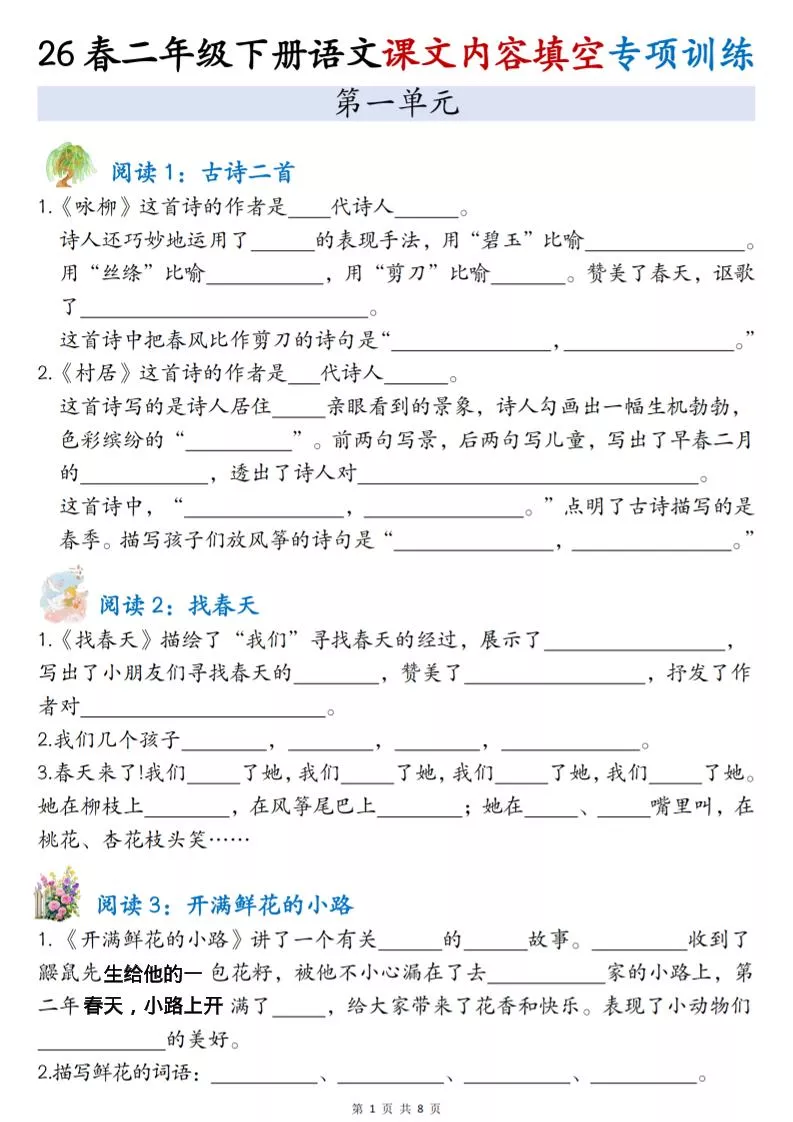 26春二年级下册语文课文内容填空专项训练
第一单元
阅读1：古诗二首
1.《咏柳》这首诗的作者是____代诗人______。
诗人还巧妙地运用了______的表现手法，用“碧玉”比喻_______________。
用“丝绦”比喻___________，用“剪刀”比喻_______。赞美了春天，讴歌
了___________________________。
这首诗中把春风比作剪刀的诗句是“_______________，________________。”
2.《村居》这首诗的作者是___代诗人______。
这首诗写的是诗人居住_____亲眼看到的景象，诗人勾画出一幅生机勃勃，
色彩缤纷的“__________”。前两句写景，后两句写儿童，写出了早春二月
的____________，透出了诗人对________________________________。
这首诗中，“_______________，_______________。”点明了古诗描写的是
春季。描写孩子们放风筝的诗句是“_______________，_______________。”
阅读2：找春天
1.《找春天》描绘了“我们”寻找春天的经过，展示了_________________，
写出了小朋友们寻找春天的________，赞美了_________________，抒发了作
者对_______________________。
2.我们几个孩子________，________，________，_____________。
3.春天来了!我们_____了她，我们_____了她，我们_____了她，我们_____了她。
她在柳枝上________，在风筝尾巴上________；她在_____、_____嘴里叫，在
桃花、杏花枝头笑……
阅读3：开满鲜花的小路
1.《开满鲜花的小路》讲了一个有关______的______故事。_________收到了
鼹鼠先生给他的一 包花籽，被他不小心漏在了去___________家的小路上，第
二年春天，小路上开 满了_____，给大家带来了花香和快乐。表现了小动物们
____________的美好。
2.描写鲜花的词语：__________、__________、__________、__________。
第 1 页 共 8 页